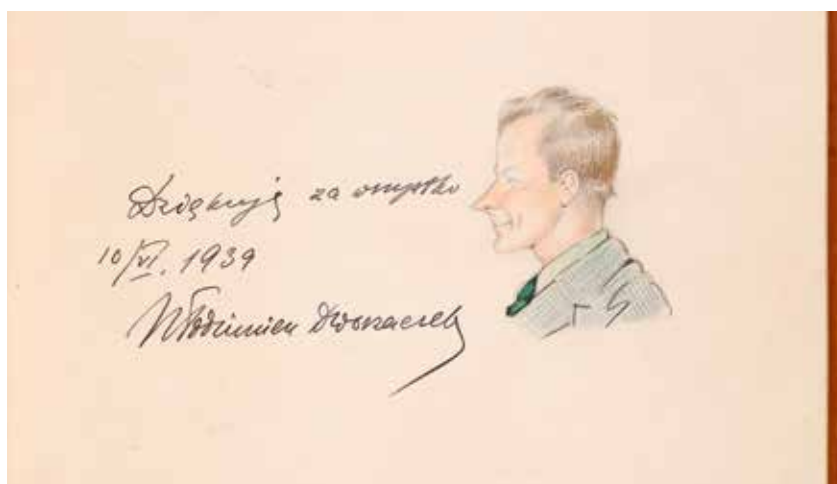 Dziękuję za wszystko
10/VI. 1939
Włodzimierz Dworzaczek